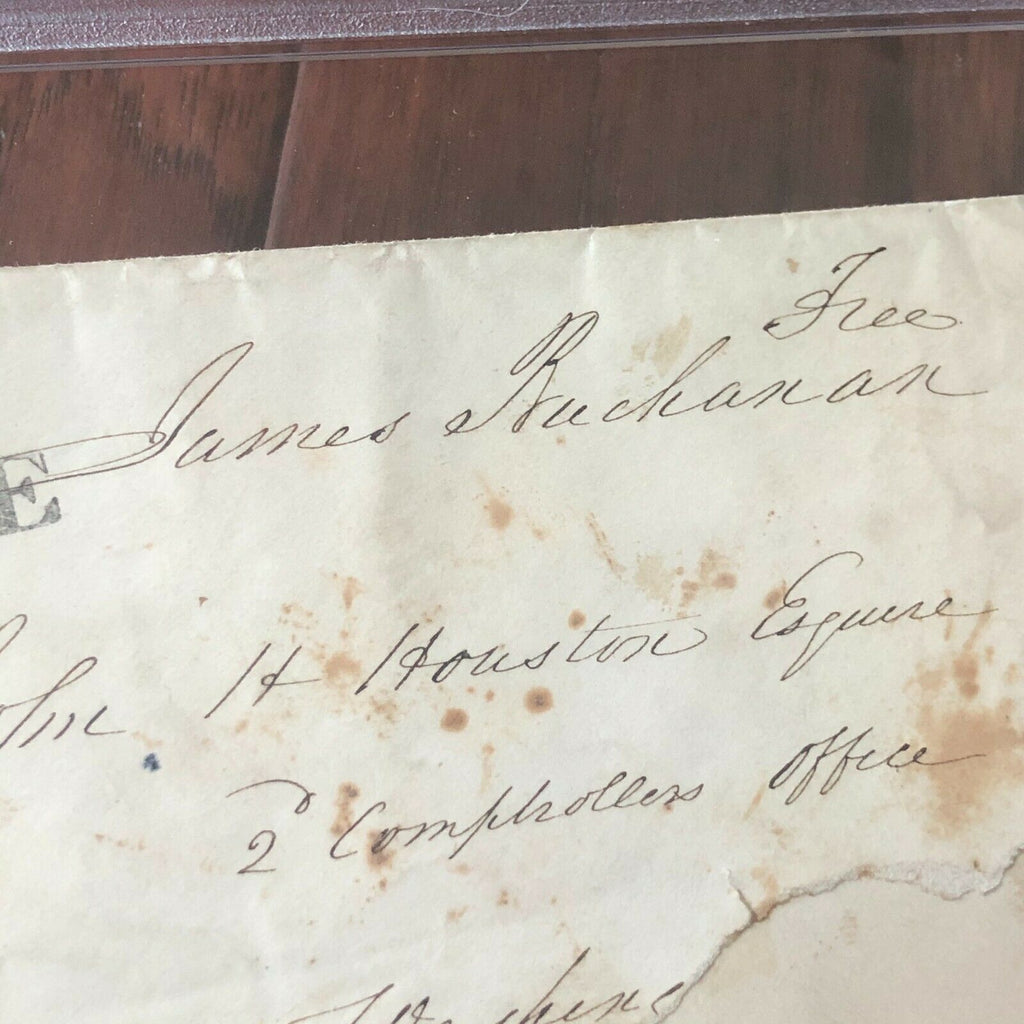 Free
James Buchanan
E
John H Houston Esquire
2d Comptrollers Office